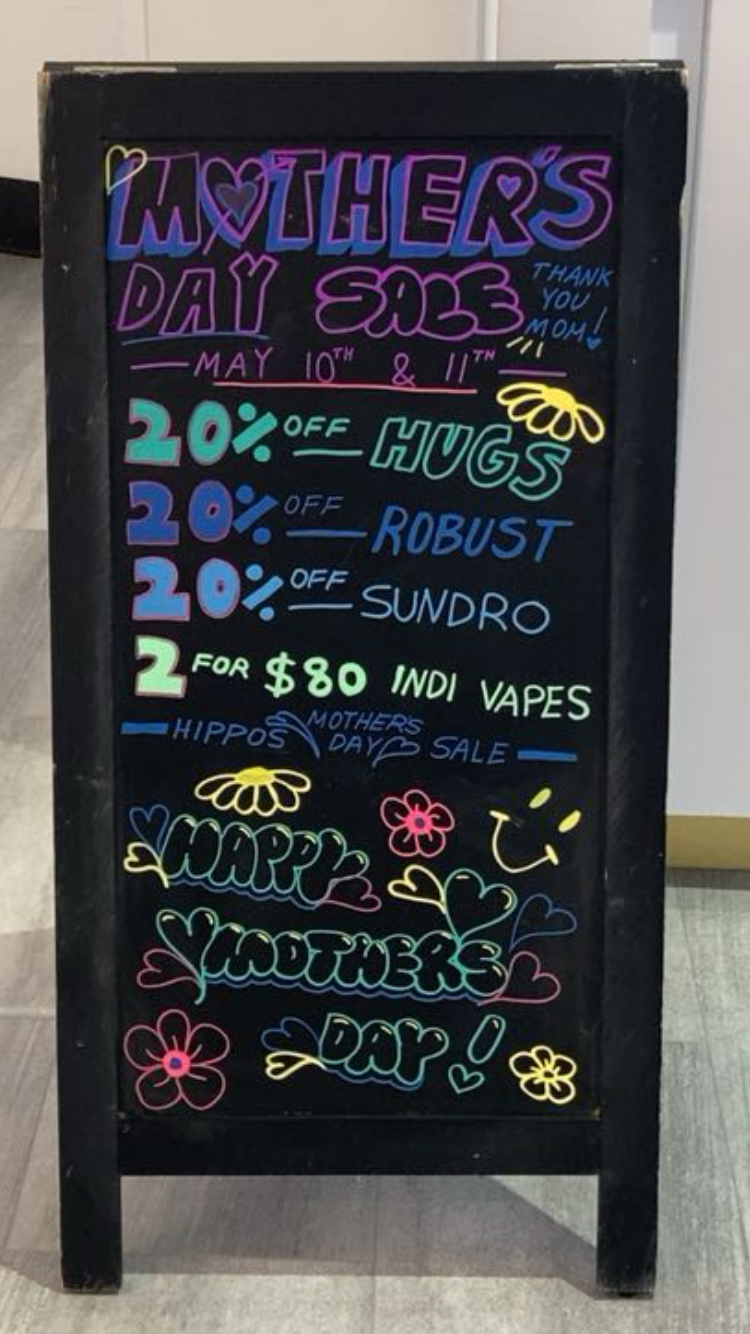 MOTHER'S
DAY SALE
THANK
YOU
MOM!
MAY 10TH & 11TH
20% OFF HUGS
20% OFF ROBUST
20% OFF SUNDRO
2 FOR $80 INDI VAPES
HIPPOS MOTHER'S DAY SALE
HAPPY
MOTHERS
DAY!